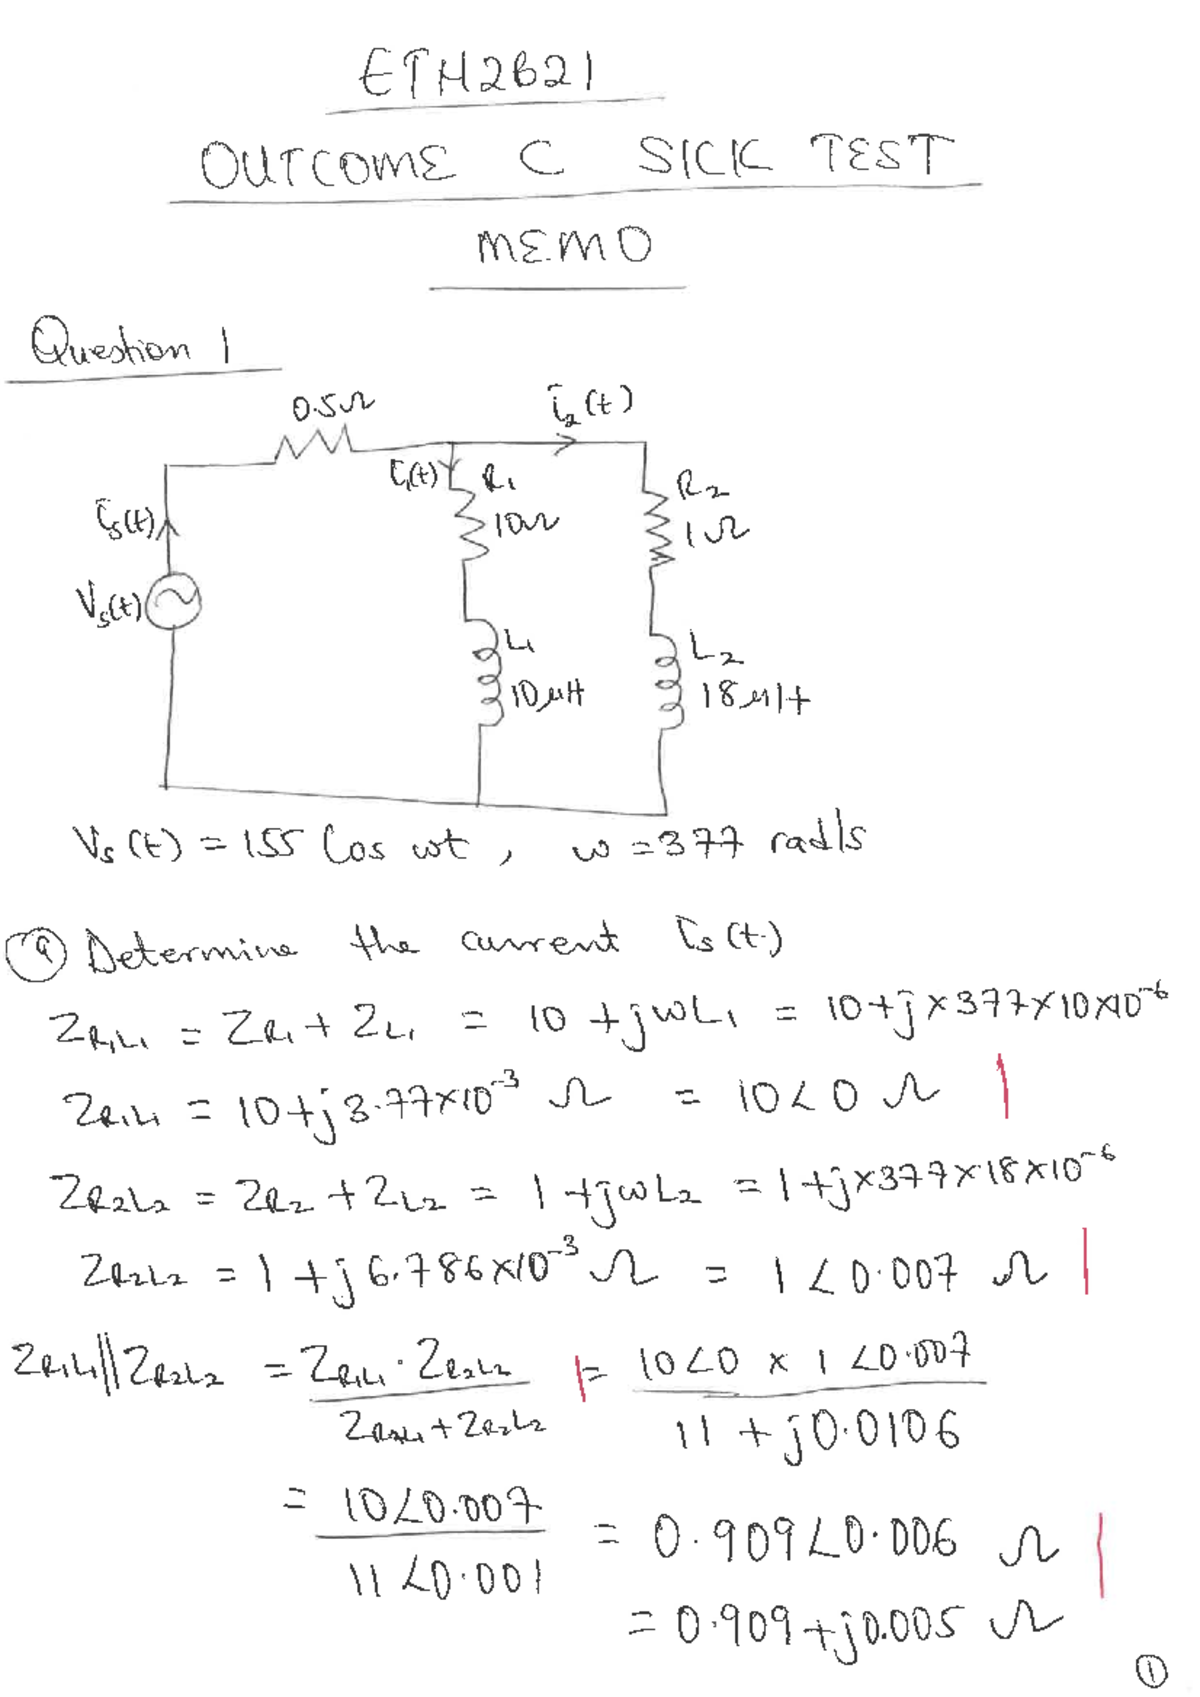 ETH2B21
OUTCOME C SICK TEST
MEMO
Question 1
0.5Ω
i₂(t)
i₁(t)
R₁
10Ω
R₂
1Ω
iₛ(t)
Vₛ(t)
L₁
10μH
L₂
18μH
Vₛ(t) = 155 Cos ωt, ω = 377 rad/s
(a) Determine the current iₛ(t)
Z_R₁L₁ = Z_R₁ + Z_L₁ = 10 + jωL₁ = 10 + j×377×10×10⁻⁶
Z_R₁L₁ = 10 + j3.77×10⁻³ Ω = 10∠0 Ω
Z_R2L2 = Z_R2 + Z_L2 = 1 + jωL₂ = 1 + j×377×18×10⁻⁶
Z_R2L2 = 1 + j6.786×10⁻³ Ω = 1∠0.007 Ω
Z_R₁L₁ || Z_R2L2 = Z_R₁L₁ · Z_R2L2 / Z_R₁L₁ + Z_R2L2 = 10∠0 × 1∠0.007 / 11 + j0.0106
= 10∠0.007 / 11∠0.001 = 0.909∠0.006 Ω
= 0.909 + j0.005 Ω
①